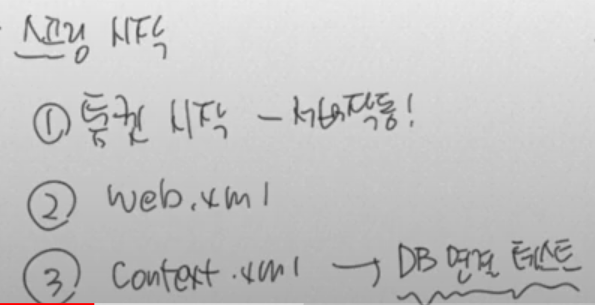 스프링 시작
① 톰캣 시작 - 서버작동!
② web.xml
③ Context.xml → DB 연결 테스트